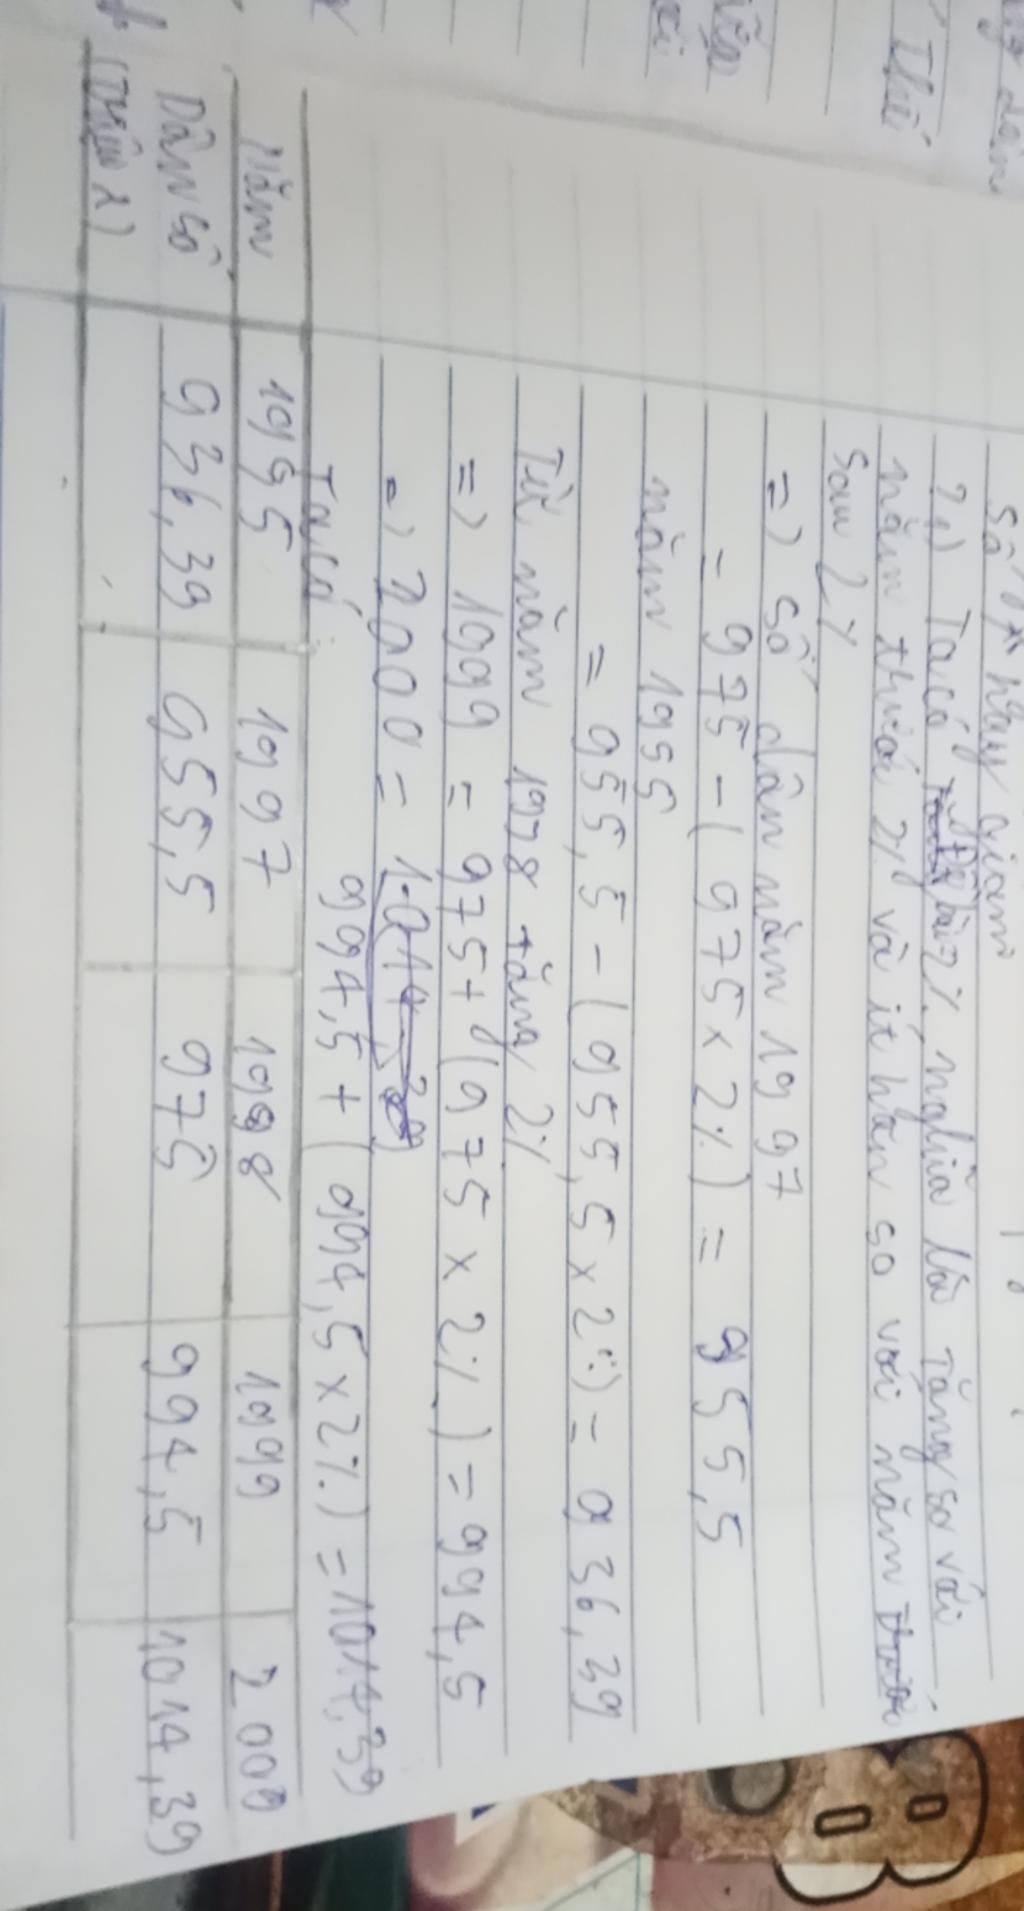 số
2,) Ta có bài 2% nghĩa là tăng so với
năm trước 2% và ít hơn so với năm
sau 2%
=) số dân năm 1997
= 975 - ( 975 x 2% ) = 955,5
năm 1955
= 955,5 - ( 955,5 x 2%) = 936,39
Từ năm 1978 tăng 2%
=) 1999 = 975 + ( 975 x 2% ) = 994,5
=) 2000 =
994,5 + ( 994,5 x 2% ) = 1014,39
Ta có
Năm 1995 1997 1998 1999 2000
Dân số 936,39 955,5 975 994,5 1014,39
(Triệu
Thế